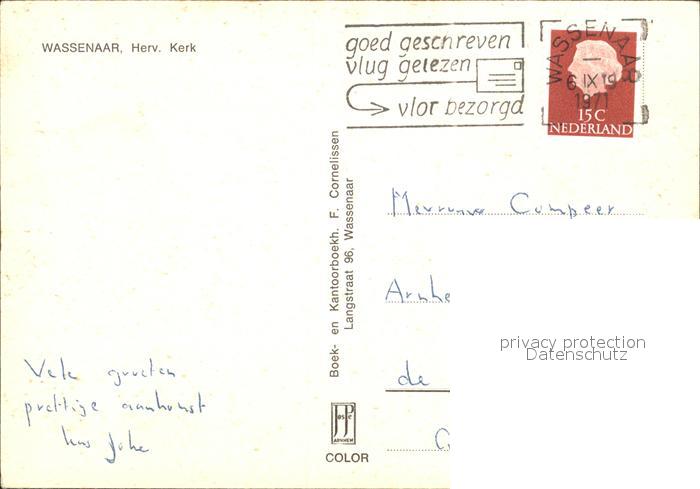 WASSENAAR, Herv. Kerk
goed geschreven
vlug gelezen
vlor bezorgd
WASSENAAR
6 IX 19
1971
15 C
NEDERLAND
Boek- en Kantoorboekh. F. Cornelissen
Langstraat 96, Wassenaar
Mevrouw Compeer
Arnhe
de
G
privacy protection
Datenschutz
Vele groeten
prettige aankomst
Joke
JosPé
ARNHEM
COLOR